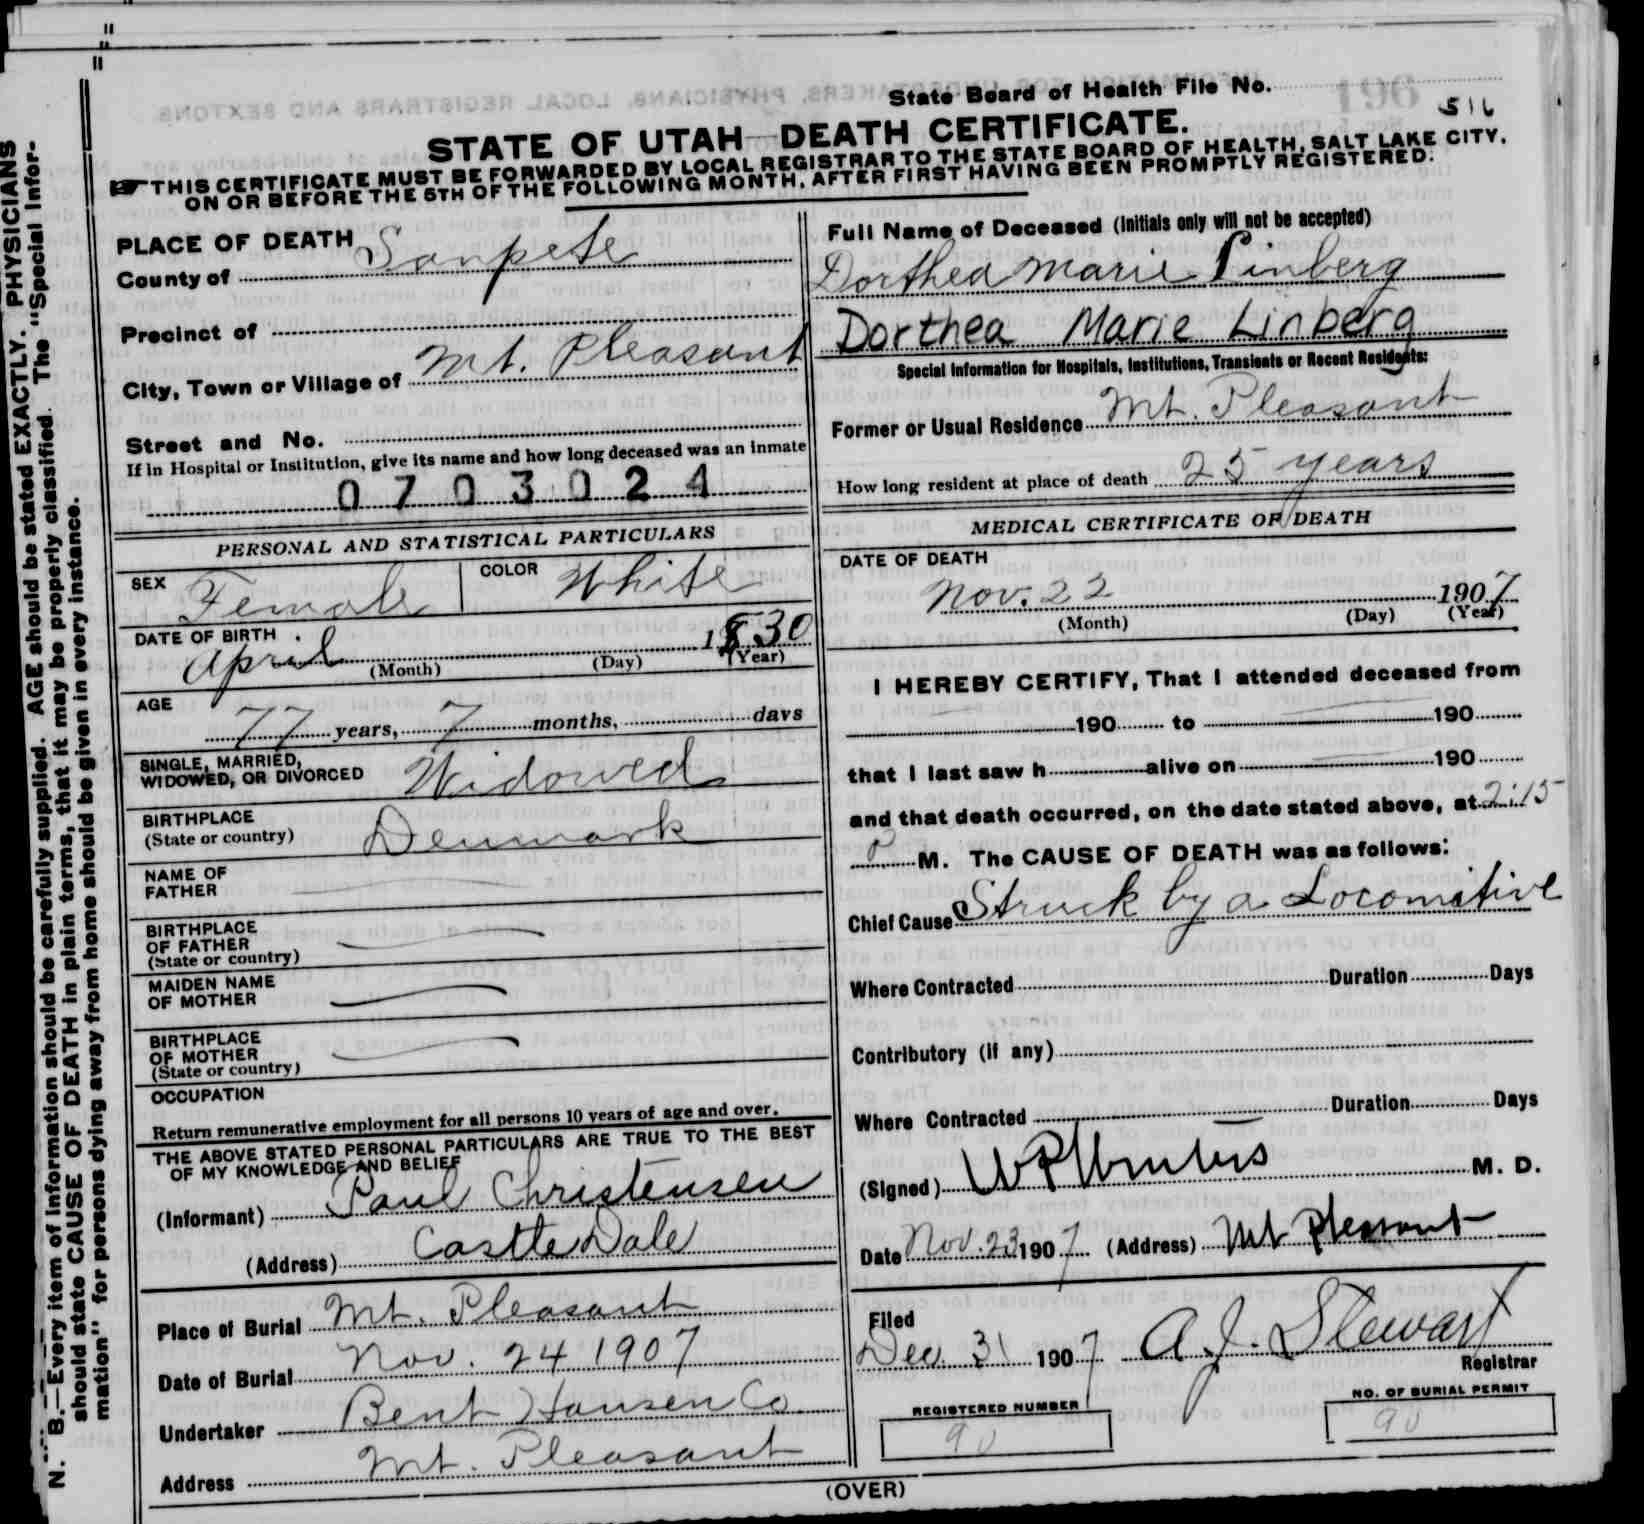 State Board of Health File No.
196
516
STATE OF UTAH—DEATH CERTIFICATE.
THIS CERTIFICATE MUST BE FORWARDED BY LOCAL REGISTRAR TO THE STATE BOARD OF HEALTH, SALT LAKE CITY,
ON OR BEFORE THE 5TH OF THE FOLLOWING MONTH, AFTER FIRST HAVING BEEN PROMPTLY REGISTERED.
N. B.—Every item of information should be carefully supplied. AGE should be stated EXACTLY. PHYSICIANS
should state CAUSE OF DEATH in plain terms, that it may be properly classified. The "Special Infor-
mation" for persons dying away from home should be given in every instance.
PLACE OF DEATH
County of Sanpete
Precinct of
City, Town or Village of Mt. Pleasant
Street and No.
If in Hospital or Institution, give its name and how long deceased was an inmate
0703024
PERSONAL AND STATISTICAL PARTICULARS
SEX Female COLOR White
DATE OF BIRTH
April 1830
(Month) (Day) (Year)
AGE
77 years, 7 months, days
SINGLE, MARRIED,
WIDOWED, OR DIVORCED Widowed
BIRTHPLACE
(State or country) Denmark
NAME OF
FATHER
BIRTHPLACE
OF FATHER
(State or country)
MAIDEN NAME
OF MOTHER
BIRTHPLACE
OF MOTHER
(State or country)
OCCUPATION
Return remunerative employment for all persons 10 years of age and over.
THE ABOVE STATED PERSONAL PARTICULARS ARE TRUE TO THE BEST
OF MY KNOWLEDGE AND BELIEF
(Informant) Paul Christensen
(Address) Castle Dale
Place of Burial Mt. Pleasant
Date of Burial Nov. 24 1907
Undertaker Bent Hansen Co.
Address Mt. Pleasant
Full Name of Deceased (Initials only will not be accepted)
Dorthea Marie Linberg
Dorthea Marie Linberg
Special Information for Hospitals, Institutions, Transients or Recent Residents:
Former or Usual Residence Mt. Pleasant
How long resident at place of death 25 years
MEDICAL CERTIFICATE OF DEATH
DATE OF DEATH
Nov. 22 1907
(Month) (Day) (Year)
I HEREBY CERTIFY, That I attended deceased from
190 to 190
that I last saw h alive on 190
and that death occurred, on the date stated above, at 2:15
P M. The CAUSE OF DEATH was as follows:
Chief Cause Struck by a Locomitive
Where Contracted Duration Days
Contributory (if any)
Where Contracted Duration Days
(Signed) M. D.
Date Nov. 23 1907 (Address) Mt Pleasant
Filed
Dec. 31 1907 A. J. Stewart
Registrar
REGISTERED NUMBER
90
NO. OF BURIAL PERMIT
90
(OVER)